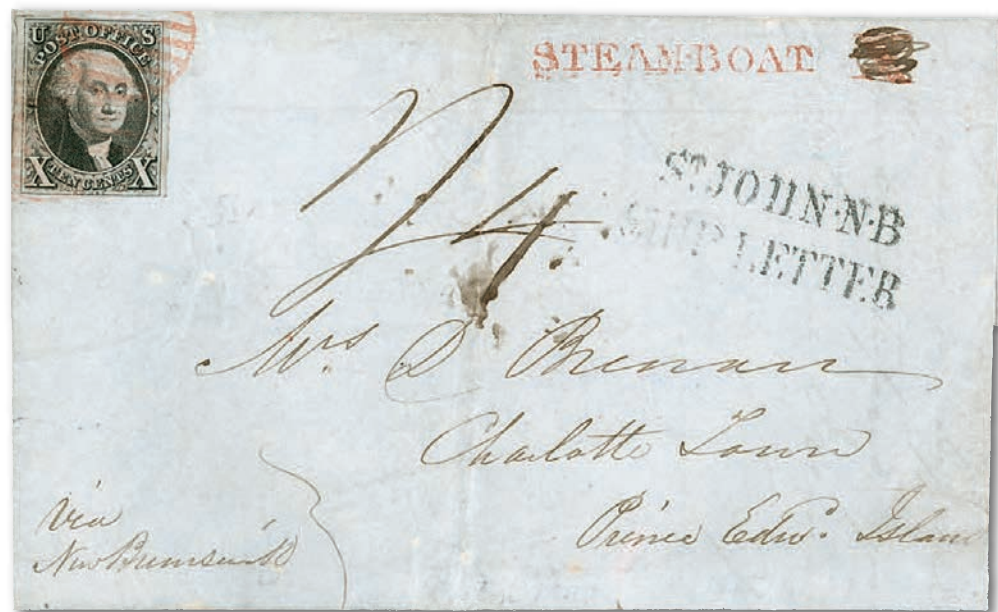 U S
POST OFFICE
X TEN CENTS X
STEAM-BOAT
ST JOHN·N·B
SHIP LETTER
4
Mrs D Brenan
Charlotte Town
Prince Edwd. Island
via
New Brunswick